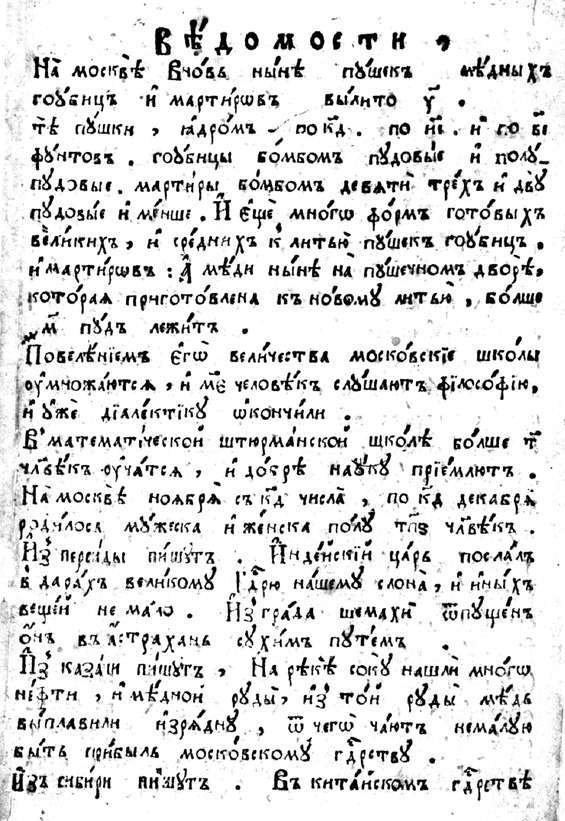 Вѣ́домости,
На̀ москвѣ̀ вно́вь ны́нѣ пу́шекъ мѣ́дныхъ
гоу́бицъ и҆ марти́рѡвъ вы́лито у҃.
тѣ̀ пу́шки, ꙗ҆дро́мъ по к҃д. по и҃і. и҆ по в҃і
фу́нтовъ. гоу́бицы бо́мбомъ пудо́вые и҆ полу-
пудо́вые. марти́ры бо́мбомъ девятѝ тре́хъ и҆ двꙋ̀
пудо́вые и҆ ме́нше. И҆ е҆щѐ мно́гѡ фо́рмъ гото́выхъ
вели́кихъ, и҆ сре́днихъ к̾ литью̀ пу́шекъ гоу́бицъ.
и҆ марти́рѡвъ: А҆ мѣ́ди ны́нѣ на̀ пу́шечномъ дворѣ̀,
кото́рая пригото́влена къ но́вому литью̀, бо́лше
м҃ пу́дъ лежи́тъ.
Повелѣ́нїемъ є҆гѡ̀ вели́чества моско́вскїе шко́лы
оу҆множа́ются, и҆ м҃е человѣ́къ слу́шаютъ фїлосо́фїю,
и҆ у҆жѐ дїале́ктїку ѡ҆ко́нчили.
В̾ математи́ческой штюрма́нской шко́лѣ бо́лше т҃
чл҃вѣ́къ оу҆ча́тся, и҆ до́брѣ нау́ку прїе́млютъ.
На̀ москвѣ̀ ноября̀ съ к҃д числа̀, по к҃д декабря̀
роди́лося му́жеска и҆ же́нска полу т҃пѕ чл҃вѣ́къ.
И҆з̾ перси́ды пи́шутъ. И҆нде́йскїй ца́рь посла́лъ
в̾ дара́хъ вели́кому Гдⷭ҇рю на́шему слона̀, и҆ и҆ны́хъ
веще́й не ма́ло. И҆з̾ гра́да шемахѝ ѿпу́щенъ
ѻ҆́нъ въ а҆́страхань сухи́мъ путе́мъ.
И҆з̾ каза́ни пи́шутъ, На̀ рѣкѣ̀ со́ку нашлѝ мно́гѡ
не́фти, и҆ мѣ́дной руды̀, и҆з̾ то́й руды̀ мѣ́дь
вы́плавили и҆зря́дну, ѿ чегѡ̀ ча́ютъ нема́лую
бы́ть при́быль моско́вскому гдⷭ҇рству.
И҆зъ сиби́ри пи́шутъ. Въ кита́йскомъ гдⷭ҇рствѣ